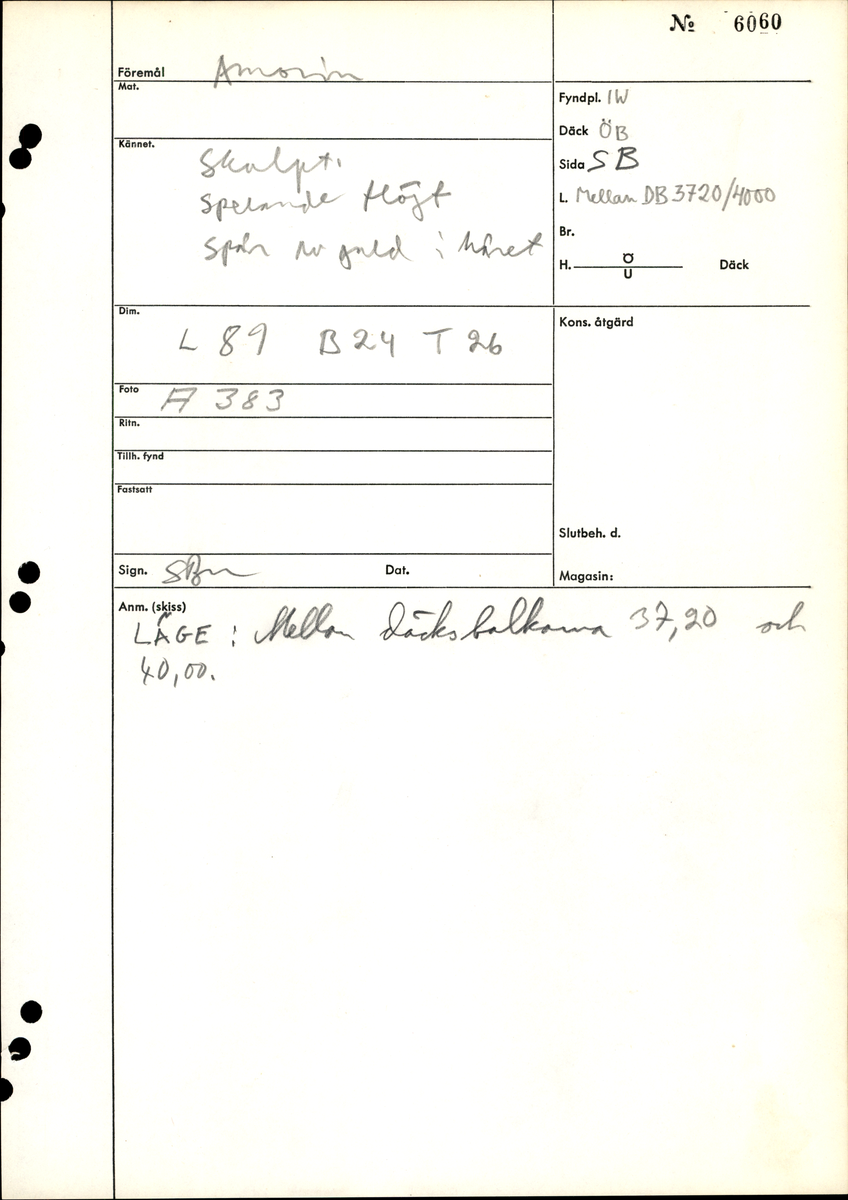 № 6060
Föremål Amorin
Mat.
Kännet.
Skulpt.
Spelande flöjt
Spår av guld i håret
Fyndpl. IW
Däck ÖB
Sida SB
L. Mellan DB 3720/4000
Br.
H. Ö Däck
U
Dim.
L 89 B 24 T 26
Foto A 383
Ritn.
Tillh. fynd
Fastsatt
Kons. åtgärd
Slutbeh. d.
Sign. SBm Dat.
Magasin:
Anm. (skiss)
LÄGE : Mellan däcksbalkarna 37,20 och
40,00.